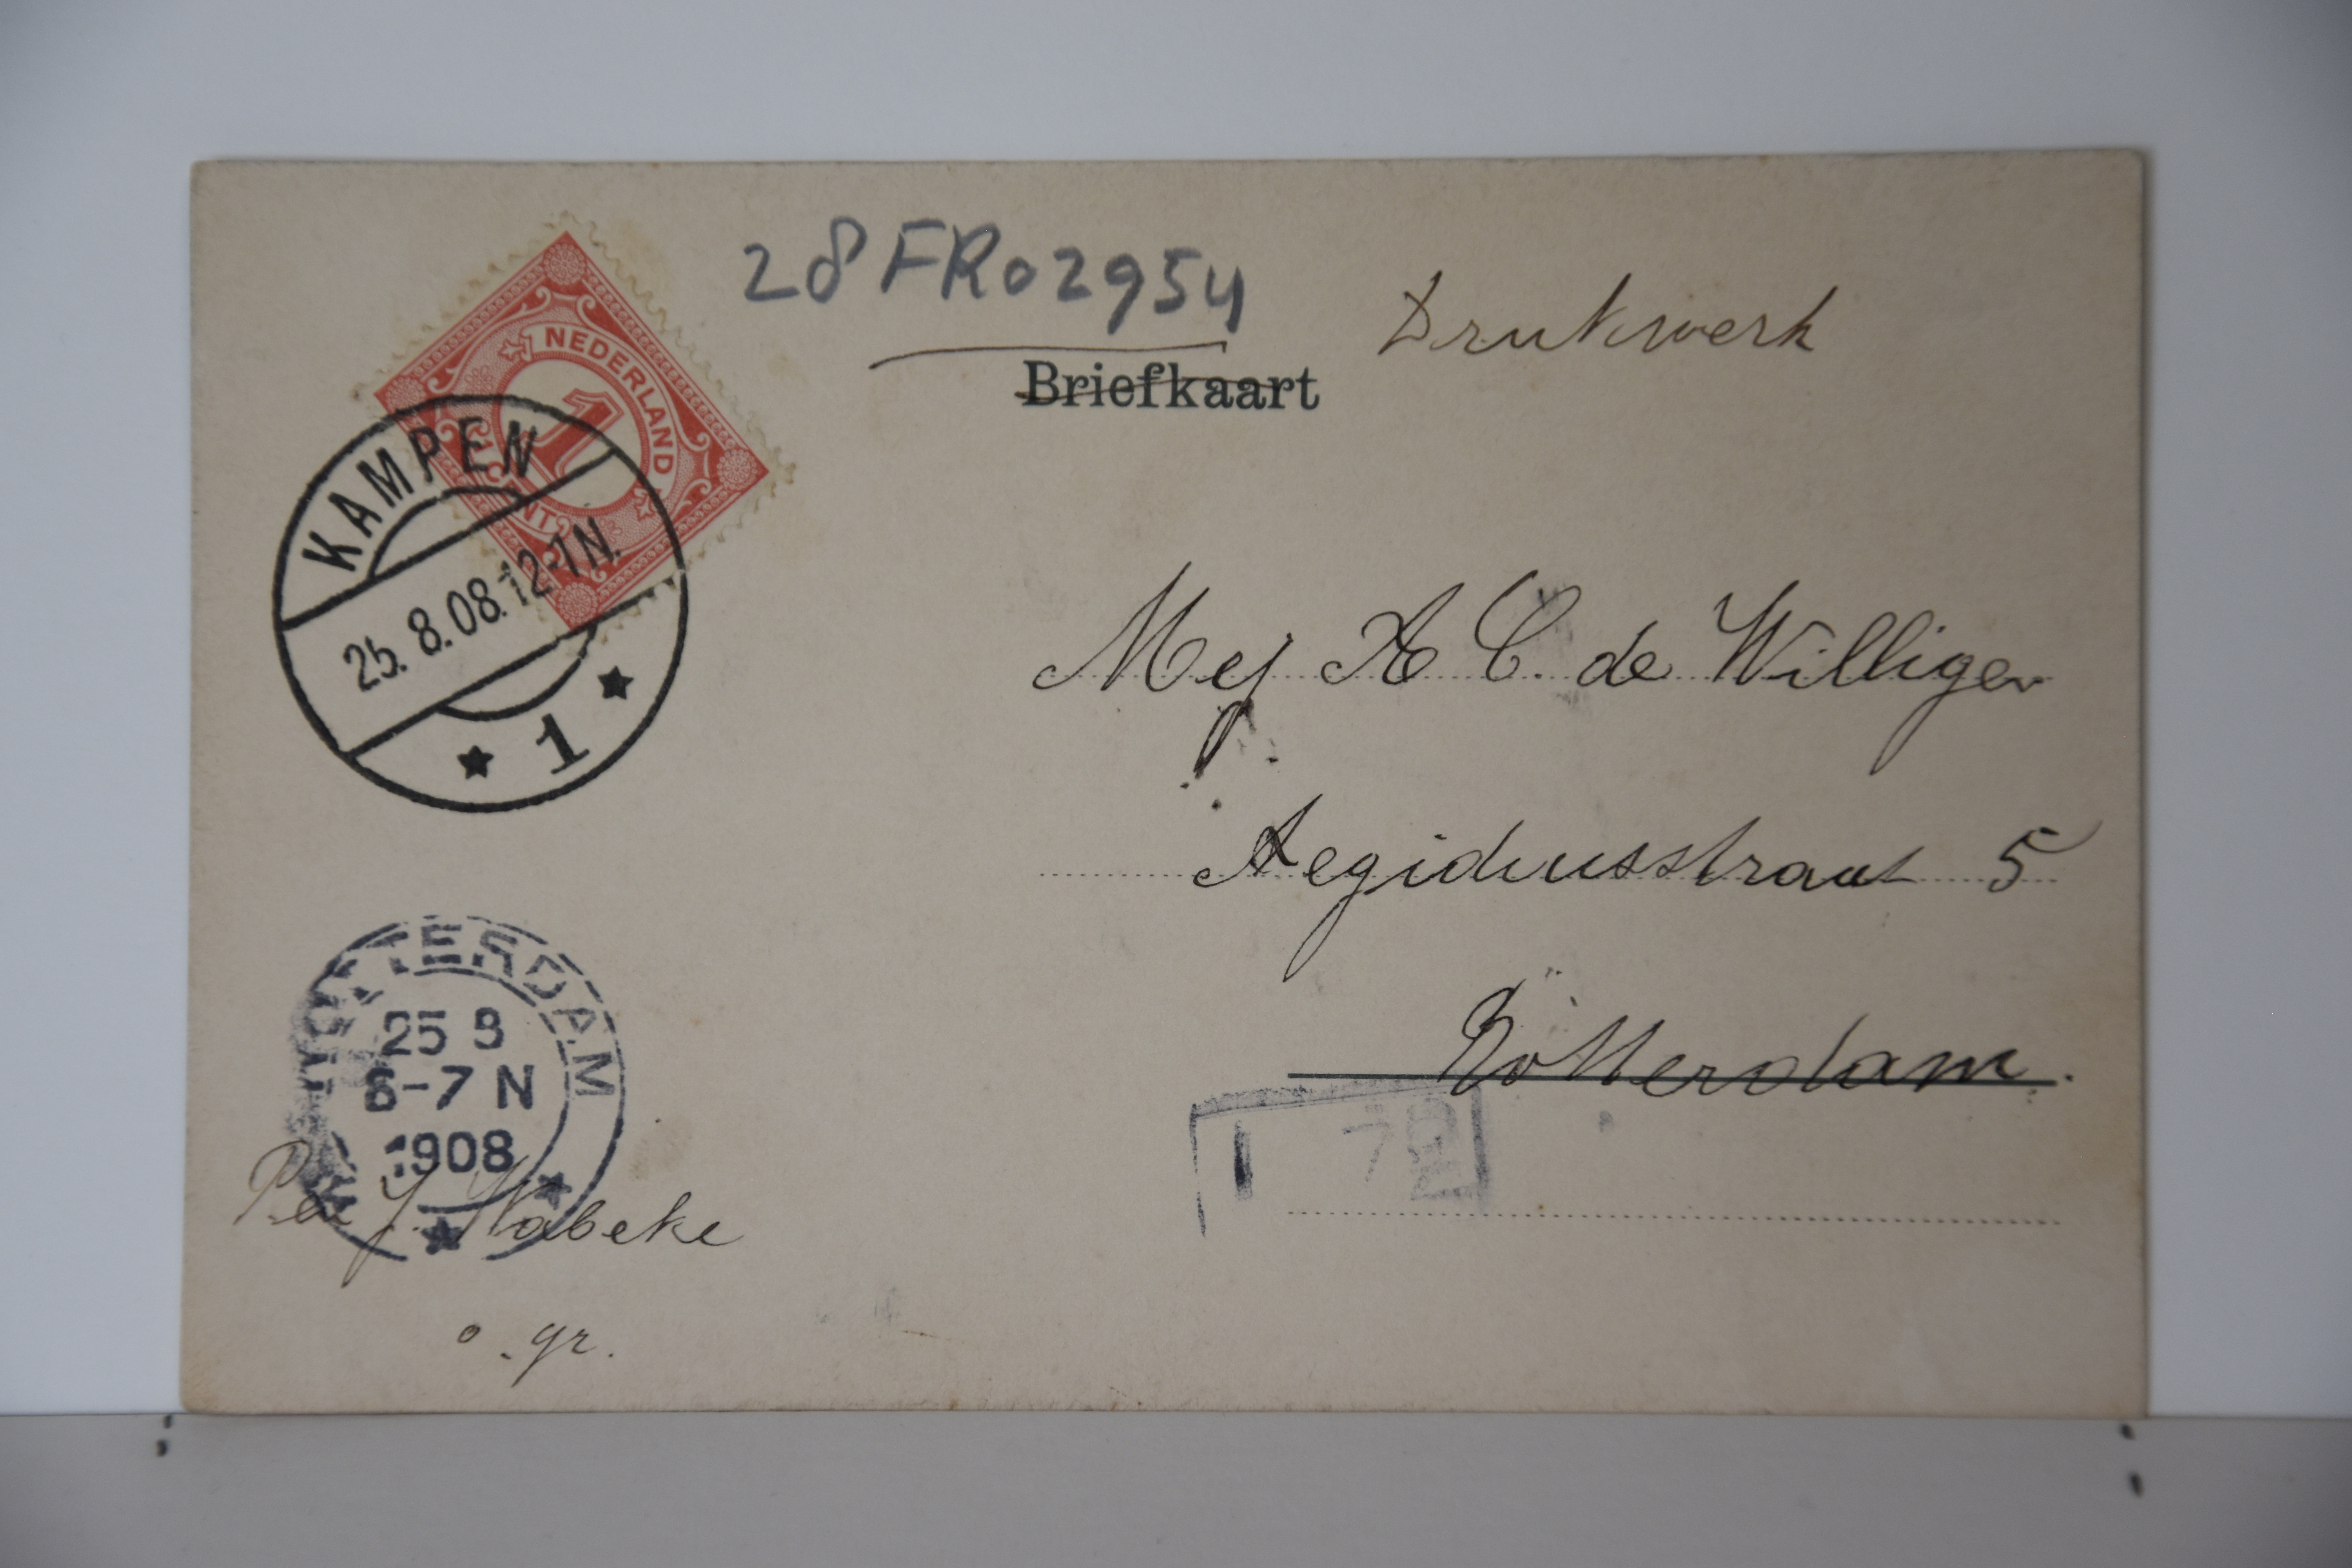 28FR02954
Drukwerk
Briefkaart
NEDERLAND
1
CENT
KAMPEN
25. 8.08.12-1N.
1
Mej A C. de Willigen
Aegidiusstraat 5
Rotterdam.
ROTTERDAM
25 8
6-7 N
1908
Per J.
o. gr.
1 72